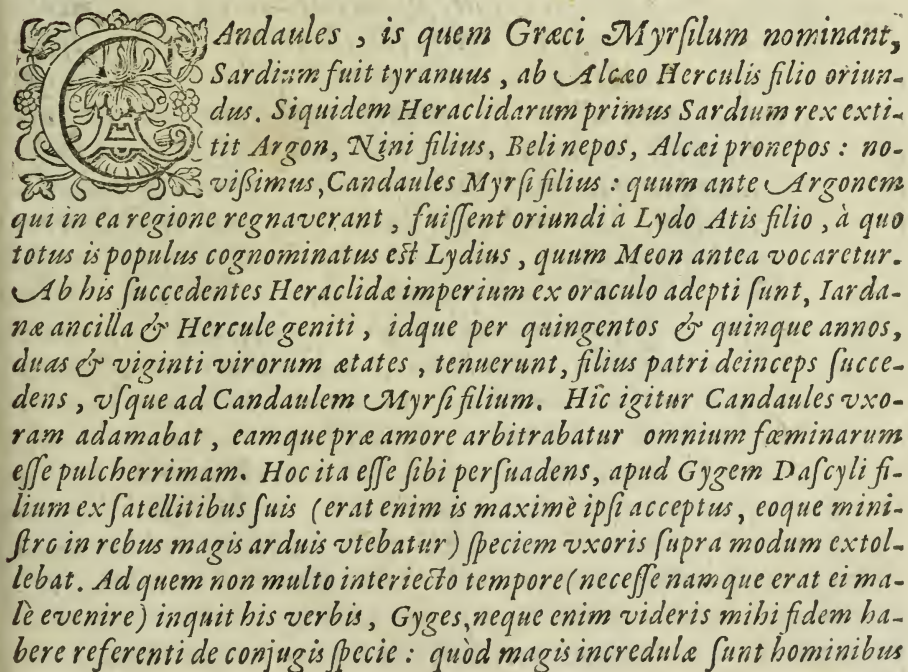 CAndaules, is quem Græci Myrſilum nominant,
Sardium fuit tyranuus, ab Alcæo Herculis filio oriun-
dus. Siquidem Heraclidarum primus Sardium rex exti-
tit Argon, Nini filius, Beli nepos, Alcæi pronepos: no-
viſsimus, Candaules Myrſi filius: quum ante Argonem
qui in ea regione regnaverant, fuiſſent oriundi à Lydo Atis filio, à quo
totus is populus cognominatus eſt Lydius, quum Meon antea vocaretur.
Ab his ſuccedentes Heraclidæ imperium ex oraculo adepti ſunt, Iarda-
næ ancilla & Hercule geniti, idque per quingentos & quinque annos,
duas & viginti virorum ætates, tenuerunt, filius patri deinceps ſucce-
dens, vſque ad Candaulem Myrſi filium. Hîc igitur Candaules vxo-
ram adamabat, eamque præ amore arbitrabatur omnium fœminarum
eſſe pulcherrimam. Hoc ita eſſe ſibi perſuadens, apud Gygem Daſcyli fi-
lium ex ſatellitibus ſuis (erat enim is maximè ipſi acceptus, eoque mini-
ſtro in rebus magis arduis vtebatur) ſpeciem vxoris ſupra modum extol-
lebat. Ad quem non multo interiecto tempore (neceſſe namque erat ei ma-
lè evenire) inquit his verbis, Gyges, neque enim videris mihi fidem ha-
bere referenti de conjugis ſpecie: quòd magis incredulæ ſunt hominibus